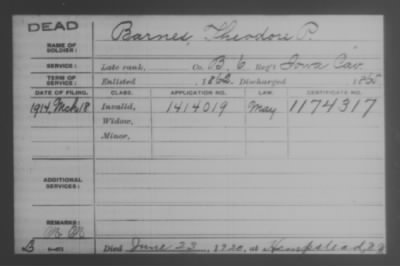 DEAD
NAME OF SOLDIER: Barnes, Theodore P.
SERVICE: Late rank, Co. B. 6 Reg't Iowa Cav.
TERM OF SERVICE: Enlisted , 1862, Discharged 1865
DATE OF FILING. CLASS. APPLICATION NO. LAW. CERTIFICATE NO.
1914, Mch 18 Invalid, 1414019 May 1174317
Widow,
Minor,
ADDITIONAL SERVICES:
REMARKS:
Died June 23, 1920, at Hempstead,